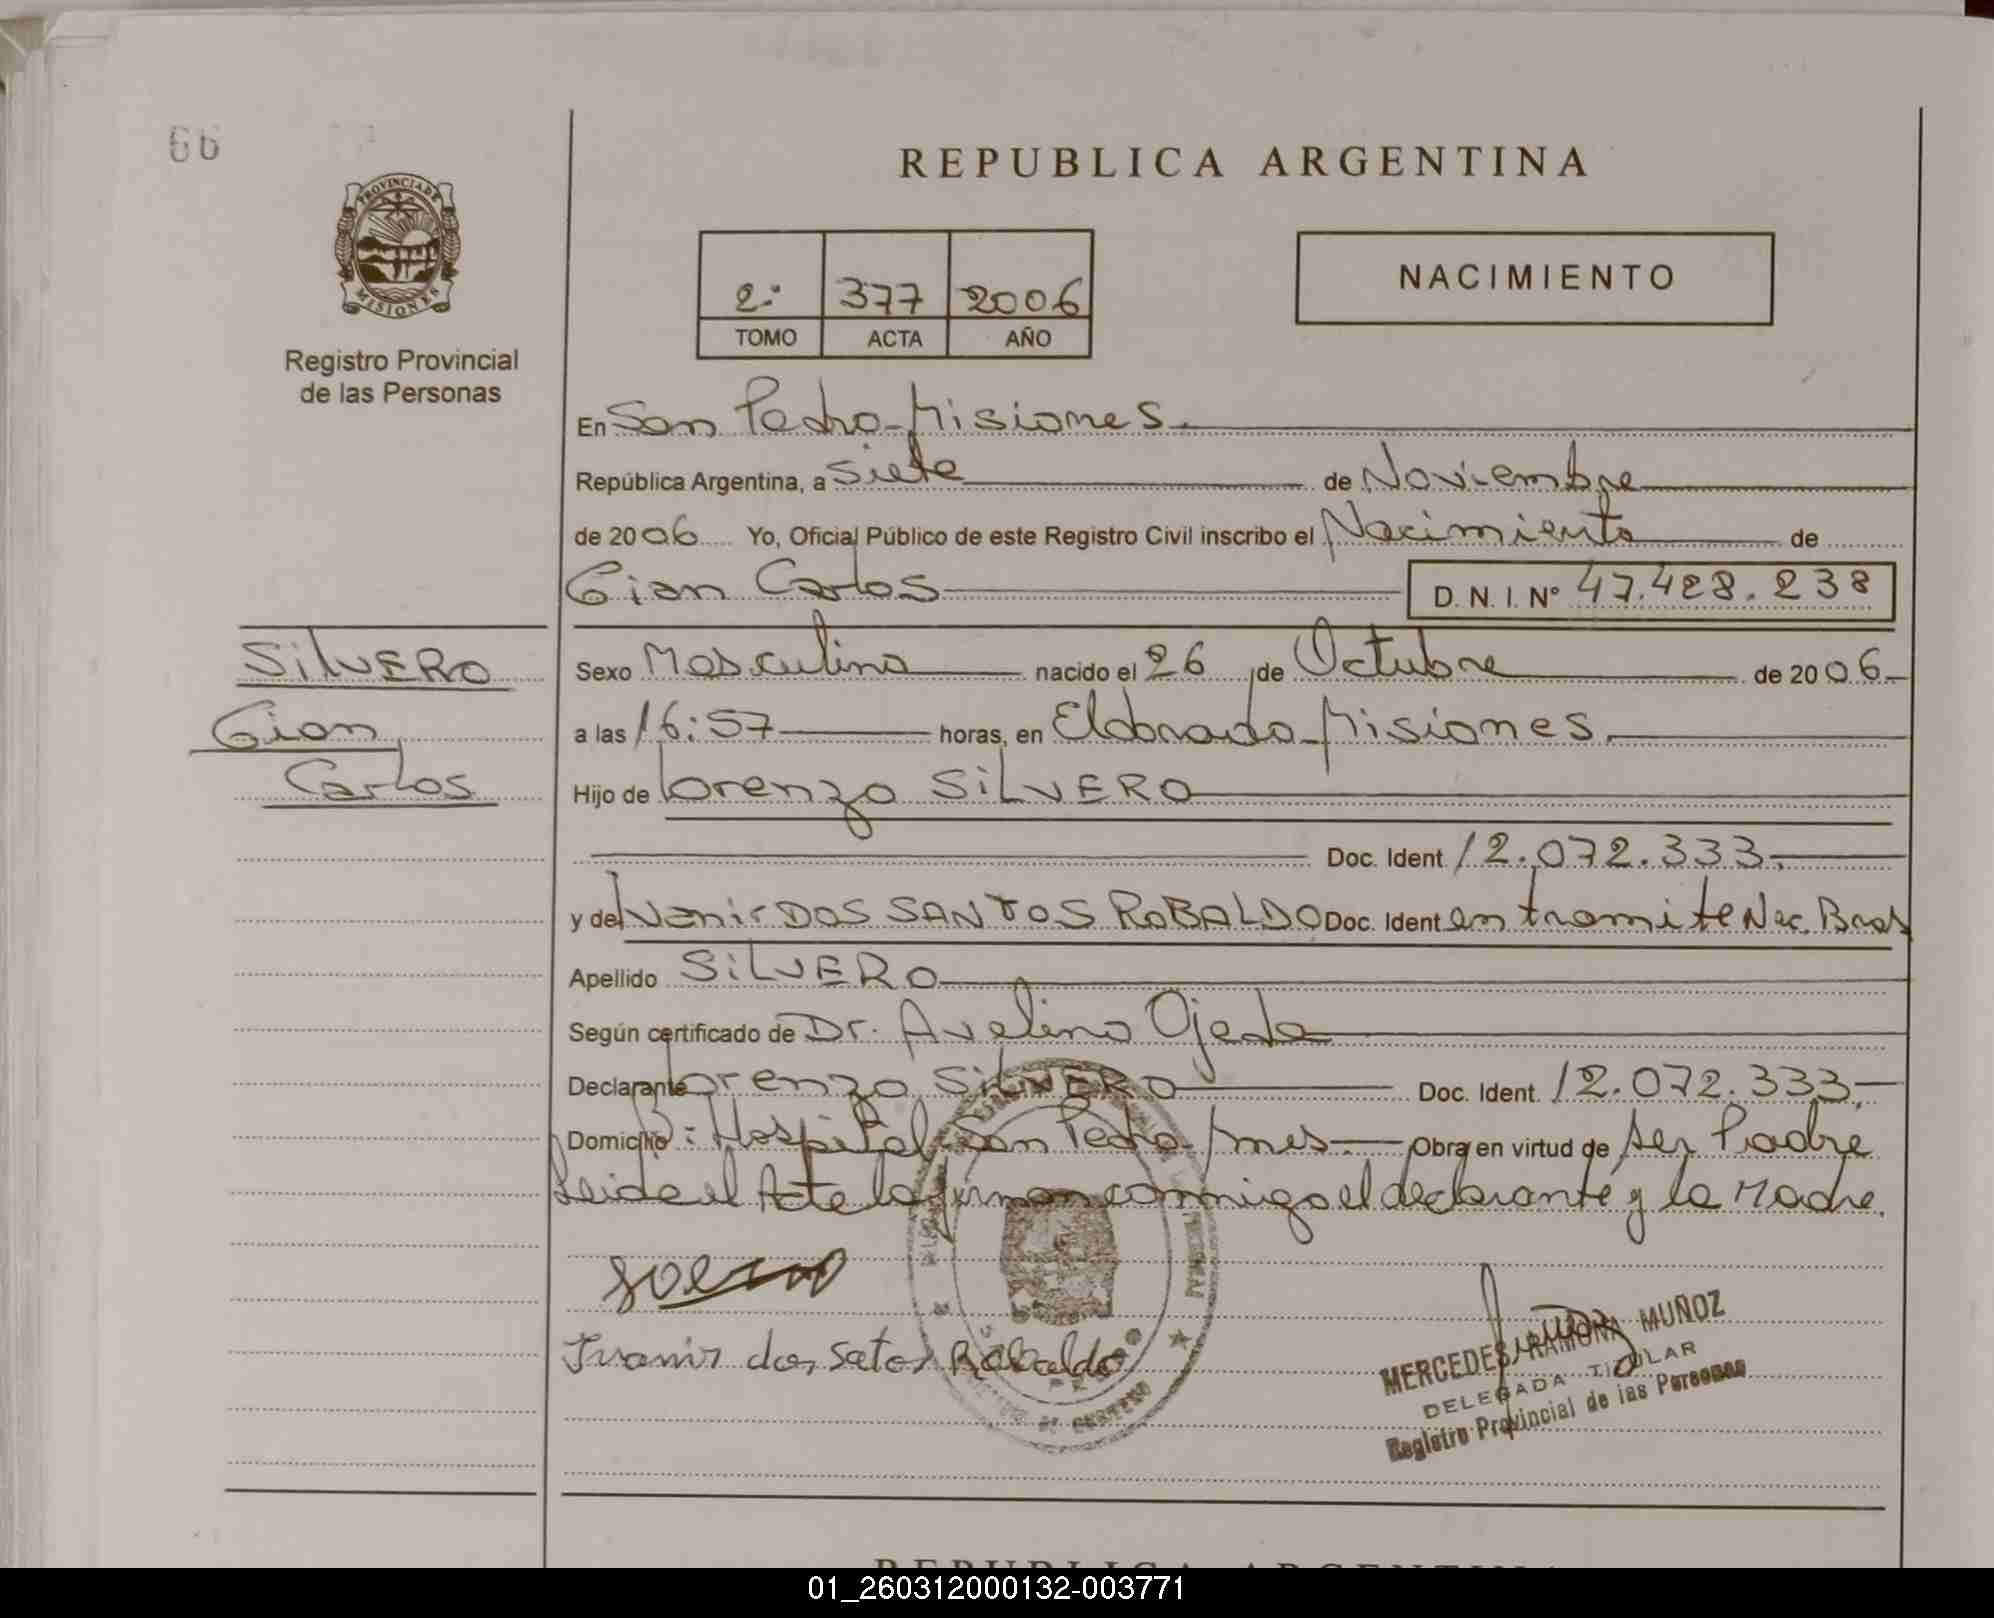 66
PROVINCIA DE
MISIONES
Registro Provincial
de las Personas
REPUBLICA ARGENTINA
2º 377 2006
TOMO ACTA AÑO
NACIMIENTO
En San Pedro - Misiones.
República Argentina, a Siete de Noviembre
de 2006 Yo, Oficial Público de este Registro Civil inscribo el Nacimiento de
Gian Carlos D. N. I. Nº 47.428.238
SILVERO
Gian
Carlos
Sexo Masculino nacido el 26 de Octubre de 2006.
a las 16:57 horas, en Eldorado - Misiones.
Hijo de Lorenzo SILVERO
Doc. Ident 12.072.333.
y de Ivanir DOS SANTOS ROBALDO Doc. Ident en tramite Nac. Bras
Apellido SILVERO
Según certificado de Dr. Avelino Ojeda
Declarante Lorenzo SILVERO Doc. Ident. 12.072.333.
Domicilio Bº: Hospital - San Pedro - Mnes. Obra en virtud de ser Padre
Leida el Acta la firman conmigo el declarante y la Madre.
Ivanir dos Satos Robaldo
MERCEDES RAMONA MUÑOZ
DELEGADA TITULAR
Registro Provincial de las Personas
REPUBLICA ARGENTINA
01_260312000132-003771